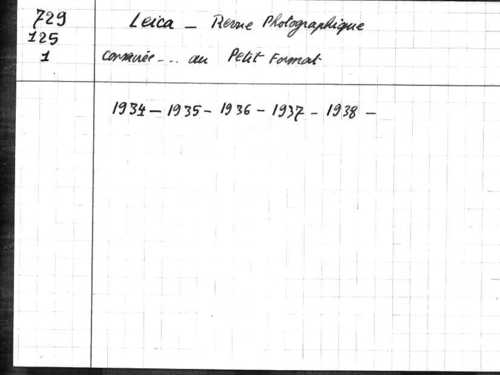 729
125
1
Leica - Revue Photographique
consacrée... au Petit Format
1934 - 1935 - 1936 - 1937 - 1938 -